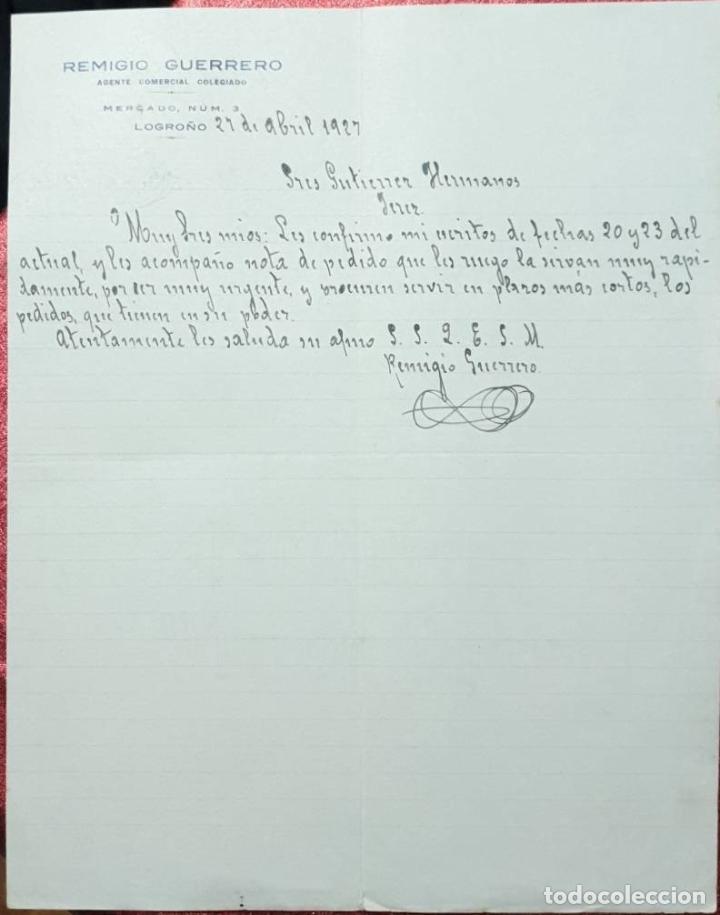 REMIGIO GUERRERO
AGENTE COMERCIAL COLEGIADO
MERCADO, NÚM. 3
LOGROÑO 27 de Abril 1927
Sres Gutierrez Hermanos
Jerez.
Muy Sres mios: Les confirmo mi escritos de fechas 20 y 23 del
actual, y les acompaño nota de pedido que les ruego la servan muy rapi-
damente, por ser muy urgente, y procuren servir en plazos más cortos, los
pedidos, que tienen en su poder.
Atentamente les saluda su afmo S. S. Q. E. S. M.
Remigio Guerrero.
todocoleccion